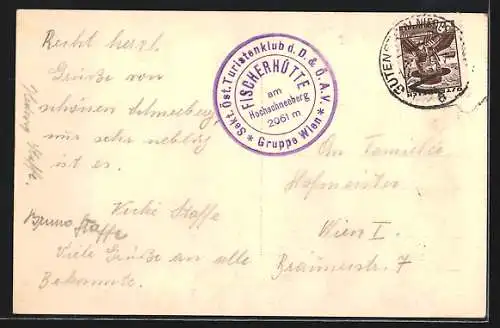 Recht herzl.
Grüße von
schönen Schneeberg,
nur sehr neblig
ist es.
Staffe
Bruno Staffe
Viele Grüße an alle
Bekannte.
Sekt. Öst. Turistenklub d. D. & Ö. A. V.
FISCHERHÜTTE
am
Hochschneeberg
2061 m
* Gruppe Wien *
GUTENS
An Familie
Hofmeister
Wien I.
Bräunerstr. 7